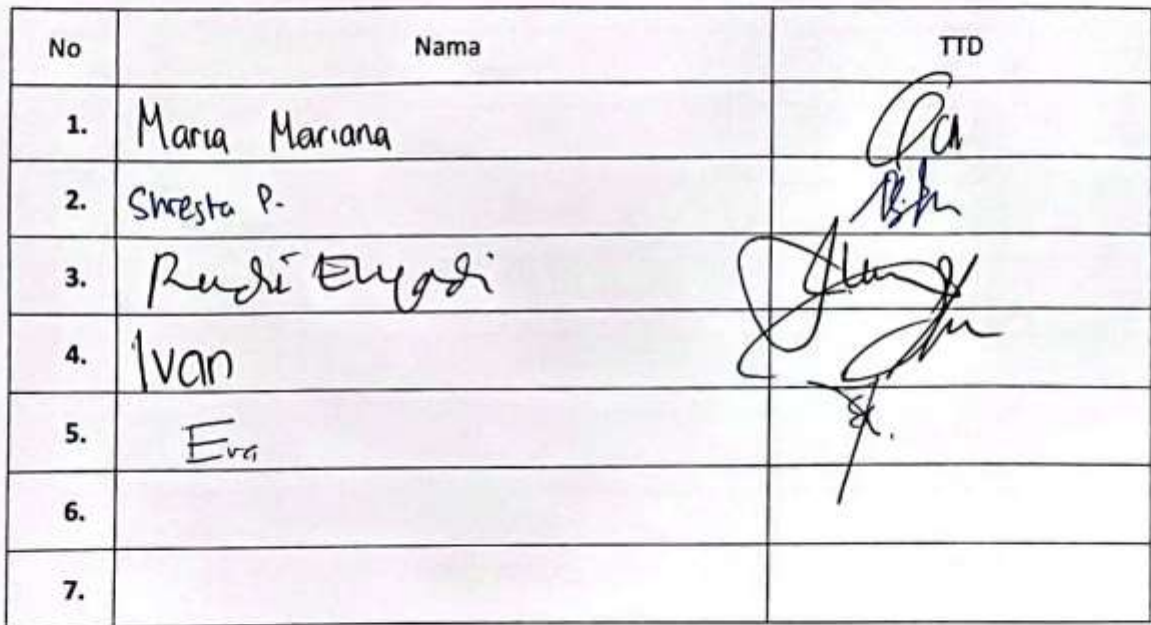 No Nama TTD
1. Maria Mariana
2. Shresta P.
3. Rudi
4. Ivan
5. Eva
6.
7.